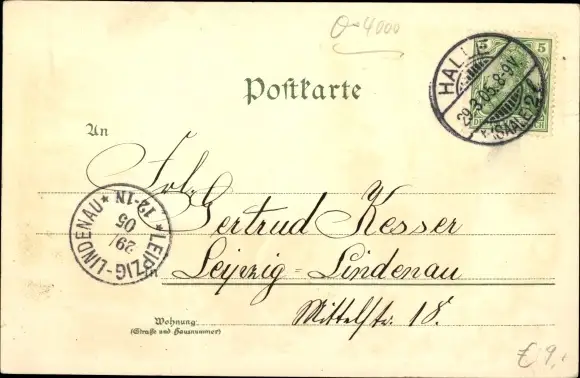 O-4000
Postkarte
HALLE
(SAALE) 2
29.3.05. 8-9V.
5
DEUTSCHES REICH
An
Frl.
Gertrud Kesser
LEIPZIG-LINDENAU
29/
05
12-1N
in Leipzig-Lindenau
Mittelstr. 18.
Wohnung
(Straße und Hausnummer)
€ 9,-